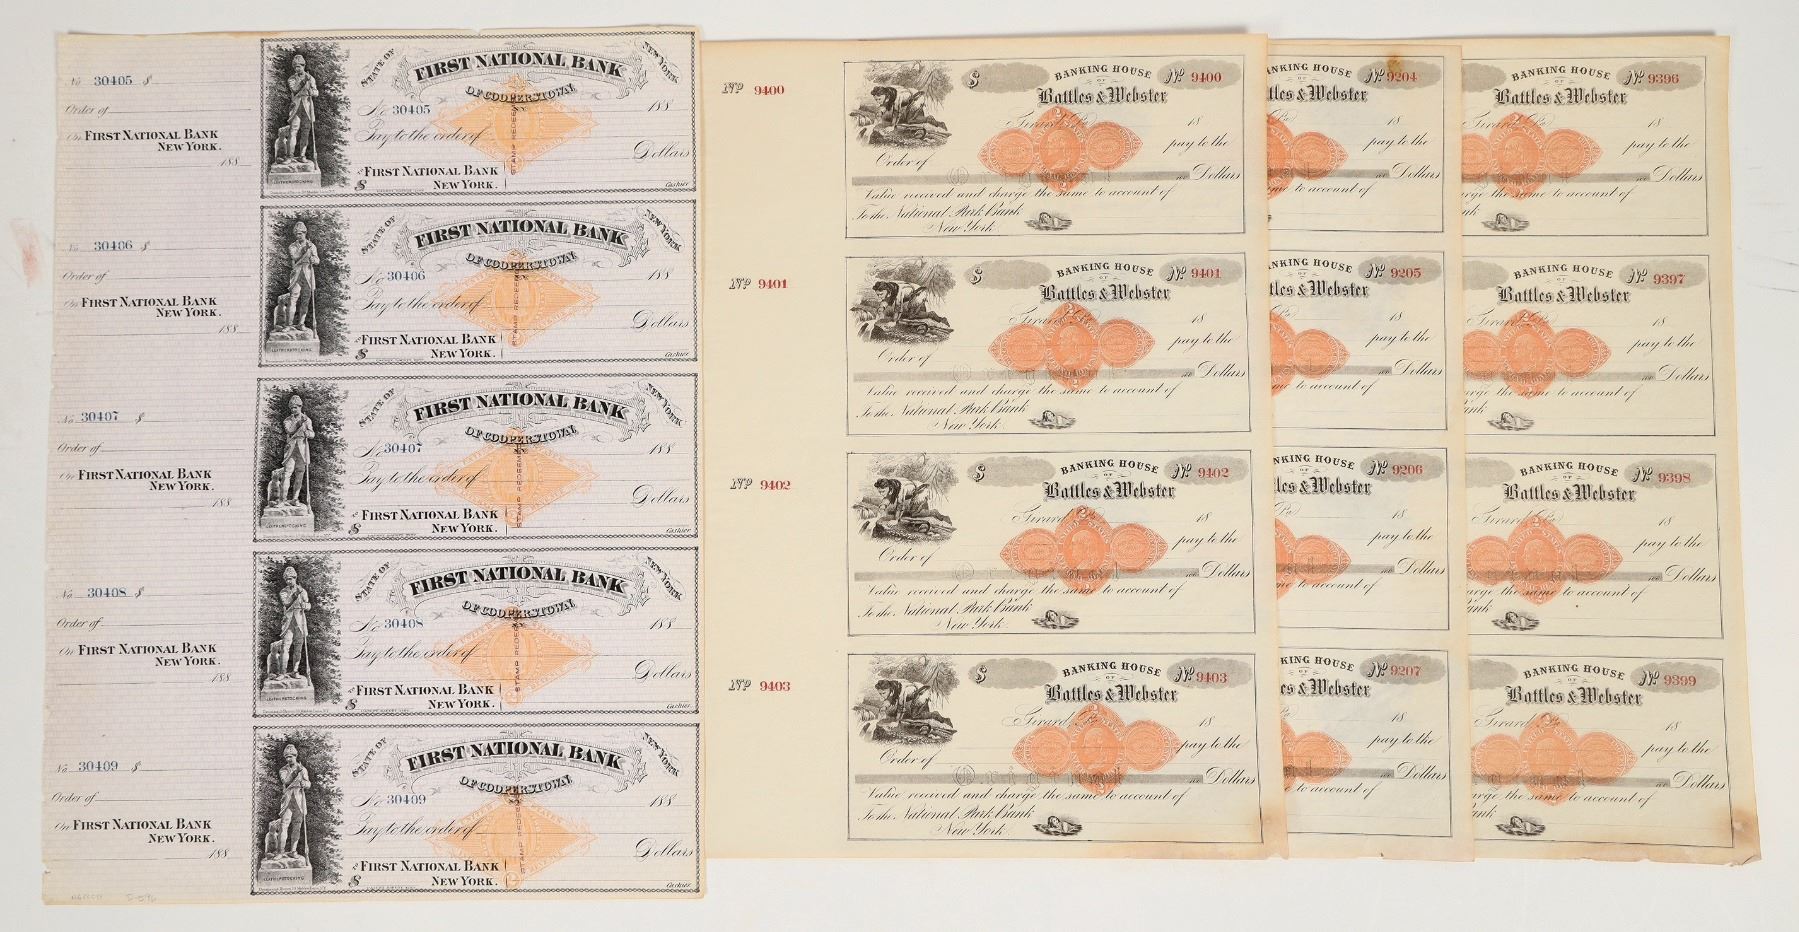 No 30405 $
Order of
On FIRST NATIONAL BANK
NEW YORK.
188
LEATHERSTOCKING
STATE OF NEW YORK
FIRST NATIONAL BANK
OF COOPERSTOWN
No 30405 188
Pay to the order of
Dollars
To FIRST NATIONAL BANK
NEW YORK.
$
Cashier
STAMP REDEEMED
No 30406 $
Order of
On FIRST NATIONAL BANK
NEW YORK.
188
LEATHERSTOCKING
STATE OF NEW YORK
FIRST NATIONAL BANK
OF COOPERSTOWN
No 30406 188
Pay to the order of
Dollars
To FIRST NATIONAL BANK
NEW YORK.
$
Cashier
STAMP REDEEMED
No 30407 $
Order of
On FIRST NATIONAL BANK
NEW YORK.
188
LEATHERSTOCKING
STATE OF NEW YORK
FIRST NATIONAL BANK
OF COOPERSTOWN
No 30407 188
Pay to the order of
Dollars
To FIRST NATIONAL BANK
NEW YORK.
$
Cashier
STAMP REDEEMED
No 30408 $
Order of
On FIRST NATIONAL BANK
NEW YORK.
188
LEATHERSTOCKING
STATE OF NEW YORK
FIRST NATIONAL BANK
OF COOPERSTOWN
No 30408 188
Pay to the order of
Dollars
To FIRST NATIONAL BANK
NEW YORK.
$
Cashier
STAMP REDEEMED
No 30409 $
Order of
On FIRST NATIONAL BANK
NEW YORK.
188
LEATHERSTOCKING
STATE OF NEW YORK
FIRST NATIONAL BANK
OF COOPERSTOWN
No 30409 188
Pay to the order of
Dollars
To FIRST NATIONAL BANK
NEW YORK.
$
Cashier
STAMP REDEEMED
No 9400
$ BANKING HOUSE No 9400
OF
Battles & Webster
Girard Pa 18
pay to the
Order of
Original
100 Dollars
Value received and charge the same to account of
To the National Park Bank
New York
No 9401
$ BANKING HOUSE No 9401
OF
Battles & Webster
Girard Pa 18
pay to the
Order of
Original
100 Dollars
Value received and charge the same to account of
To the National Park Bank
New York
No 9402
$ BANKING HOUSE No 9402
OF
Battles & Webster
Girard Pa 18
pay to the
Order of
Original
100 Dollars
Value received and charge the same to account of
To the National Park Bank
New York
No 9403
$ BANKING HOUSE No 9403
OF
Battles & Webster
Girard Pa 18
pay to the
Order of
Original
100 Dollars
Value received and charge the same to account of
To the National Park Bank
New York
NKING HOUSE No 9204
OF
tles & Webster
18
pay to the
100 Dollars
me to account of
NKING HOUSE No 9205
OF
tles & Webster
18
pay to the
100 Dollars
me to account of
NKING HOUSE No 9206
OF
tles & Webster
Pa 18
pay to the
100 Dollars
me to account of
NKING HOUSE No 9207
OF
tles & Webster
Pa 18
pay to the
100 Dollars
me to account of
BANKING HOUSE No 9396
OF
Battles & Webster
Girard Pa 18
pay to the
100 Dollars
arge the same to account of
nk
BANKING HOUSE No 9397
OF
Battles & Webster
Girard Pa 18
pay to the
100 Dollars
arge the same to account of
ank
BANKING HOUSE No 9398
OF
Battles & Webster
Girard Pa 18
pay to the
100 Dollars
arge the same to account of
ank
BANKING HOUSE No 9399
OF
Battles & Webster
Girard Pa 18
pay to the
100 Dollars
arge the same to account of
ank